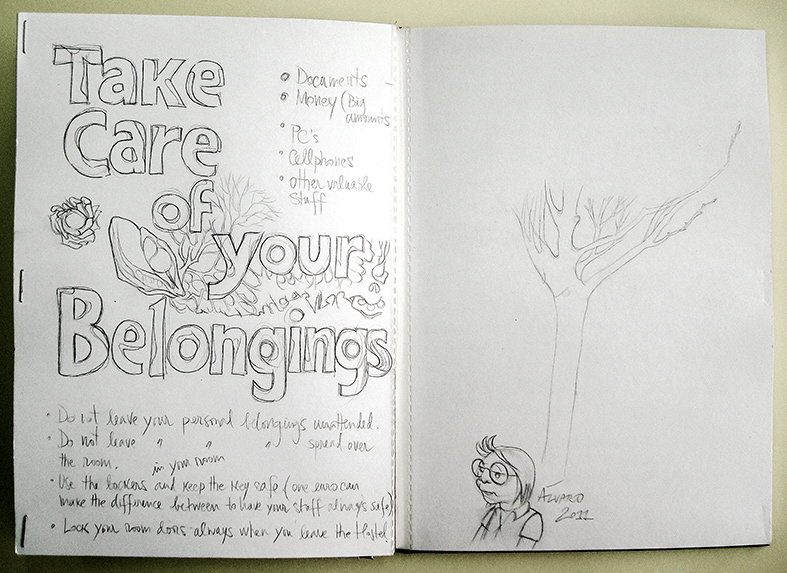 Take
Care
of
your
Belongings
Documents
Money (Big
amounts
PC's
Cellphones
other valuable
staff
Do not leave your personal belongings unattended.
Do not leave " " " spread over
the room. in your room
Use the lockers and keep the key safe (one euro can
make the difference between to have your staff always safe)
Lock your room doors always when you leave the Hostel!
ÁLVARO
2011